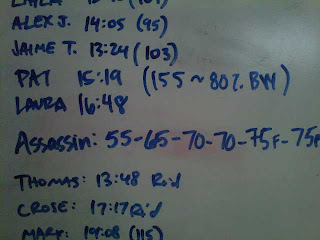 ALEX J. 14:05 (95)
JAIME T. 13:24 (103)
PAT 15:19 (155 ~ 80% BW)
LAURA 16:48
Assassin: 55-65-70-70-75F-75F
THOMAS: 13:48 Rx'd
CROSE: 17:17 Rx'd
MARK: 19:08 (115)